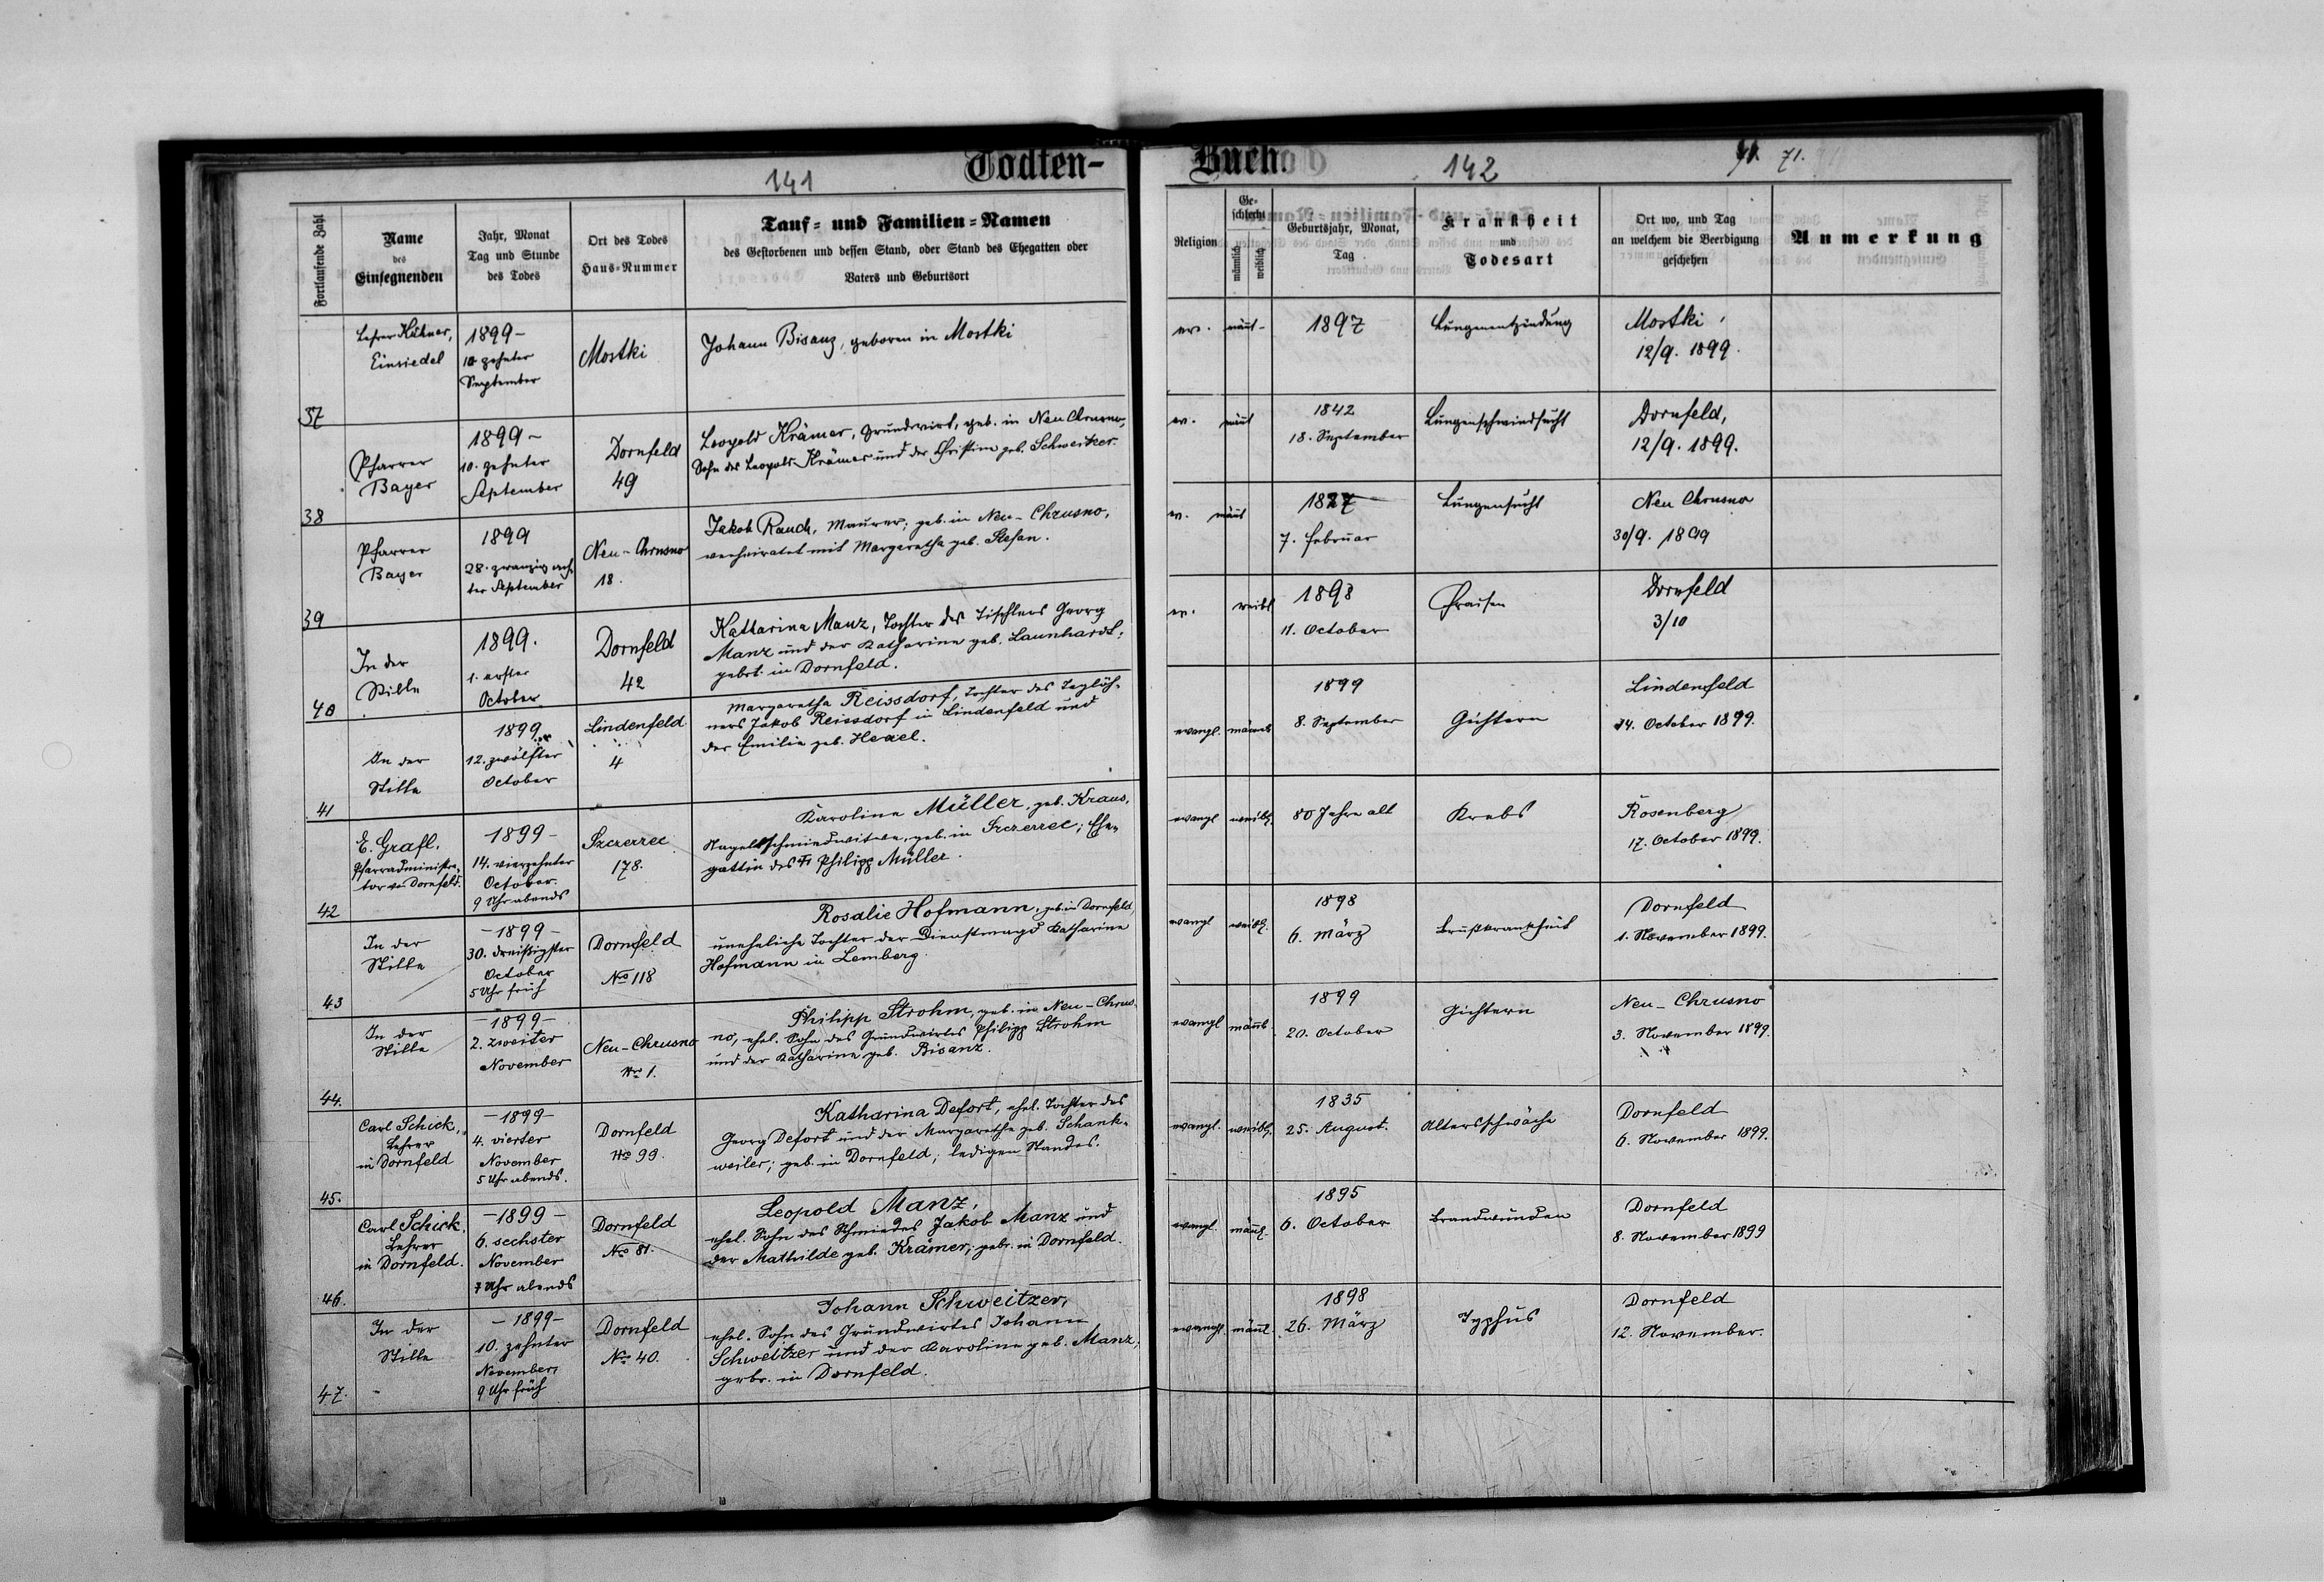 141
Todten-
Fortlaufende Zahl
Name
des
Einsegnenden
Jahr, Monat
Tag und Stunde
des Todes
Ort des Todes
Haus-Nummer
Tauf- und Familien-Namen
des Gestorbenen und dessen Stand, oder Stand des Ehegatten oder
Vaters und Geburtsort
Buch.
142
71.
Religion
Ge-
schlecht
männlich
weiblich
Geburtsjahr, Monat,
Tag
Krankheit
und
Todesart
Ort wo, und Tag
an welchem die Beerdigung
geschehen
Anmerkung
37
Lehrer
Einsiedel
1899-
10 zehnter
September
Mostki
Johann Bisanz, geboren in Mostki
ev.
1897
Lungenentzündung
Mostki
12/9. 1899.
38
Pfarrer
Bayer
1899-
10. zehnter
September
Dornfeld
49
Leopold Krämer, Grundwirt, geb. in Neu Chrusno,
Sohn des Leopold Krämer und der Christine geb. Schweitzer.
ev.
1842
18. September
Lungenschwindsucht
Dornfeld,
12/9. 1899.
39
Pfarrer
Bayer
1899
28. zwanzig ach-
ter September
Neu-Chrusno
18.
Jakob Rauch, Maurer; geb. in Neu-Chrusno,
verheiratet mit Margaretha geb. Stefan.
ev.
1827
7. Februar
Lungensucht
Neu Chrusno
30/9. 1899
40
In der
Stille
1899.
1. erster
October
Dornfeld
42
Katharina Manz, Tochter des Tischlers Georg
Manz und der Katharina geb. Launhardt,
gebrt. in Dornfeld.
ev.
weibl
1898
11. October
Fraisen
Dornfeld
3/10
41
In der
Stille
1899.
12. zwölfter
October
Lindenfeld
4
Margaretha Reissdorf, Tochter des Taglöh-
ners Jakob Reissdorf in Lindenfeld und
der Emilie geb.
evangl.
männl
1899
8. September
Gichtern
Lindenfeld
14. October 1899.
42
E. Grafl.
Pfarradministra-
tor von Dornfeld.
1899-
14. vierzehnter
October.
9 Uhr abends
Szczerzec
178.
Karolina Müller, geb. Kraus,
Nagelschmiedwitwe, geb. in Szczerzec; Ehe-
gattin des Philipp Müller.
evangl
weibl.
80 Jahre alt
Krebs
Rosenberg
17. October 1899.
43
In der
Stille
-1899-
30. dreißigster
October
5 Uhr früh
Dornfeld
No 118
Rosalie Hofmann, geb. in Dornfeld,
uneheliche Tochter der Dienstmagd Katharine
Hofmann in Lemberg.
evangl
weibl.
1898
6. März
Brustkrankheit
Dornfeld
1. November 1899.
44.
In der
Stille
-1899-
2. zweiter
November
Neu-Chrusno
Nro 1.
Philipp Strohm, geb. in Neu-Chrus-
no, ehel. Sohn des Grundwirtes Philipp Strohm
und der Katharina geb. Bisanz.
evangl
männl.
1899
20. October
Gichtern
Neu-Chrusno
3. November 1899.
45.
Carl Schick,
Lehrer
in Dornfeld
-1899-
4. vierter
November
5 Uhr abends.
Dornfeld
No 99.
Katharina Defort, ehel. Tochter des
Georg Defort und der Margaretha geb. Schank-
weiler; geb. in Dornfeld; ledigen Standes.
evangl.
weibl.
1835
25. August.
Altersschwäche
Dornfeld
6. November 1899.
46.
Carl Schick,
Lehrer
in Dornfeld.
-1899-
6. sechster
November
7 Uhr abends
Dornfeld
No 81.
Leopold Manz,
ehel. Sohn des Schmiedes Jakob Manz und
der Mathilde geb. Krämer; gebr. in Dornfeld.
evangl.
männl.
1895
6. October
Brandwunden
Dornfeld
8. November 1899
47.
In der
Stille
-1899-
10. zehnter
November,
9 Uhr früh
Dornfeld
No 40.
Johann Schweitzer,
ehel. Sohn des Grundwirtes Johann
Schweitzer und der Karoline geb. Manz;
gebr. in Dornfeld.
evangl.
männl.
26. März
1898
Typhus
Dornfeld
12. November.